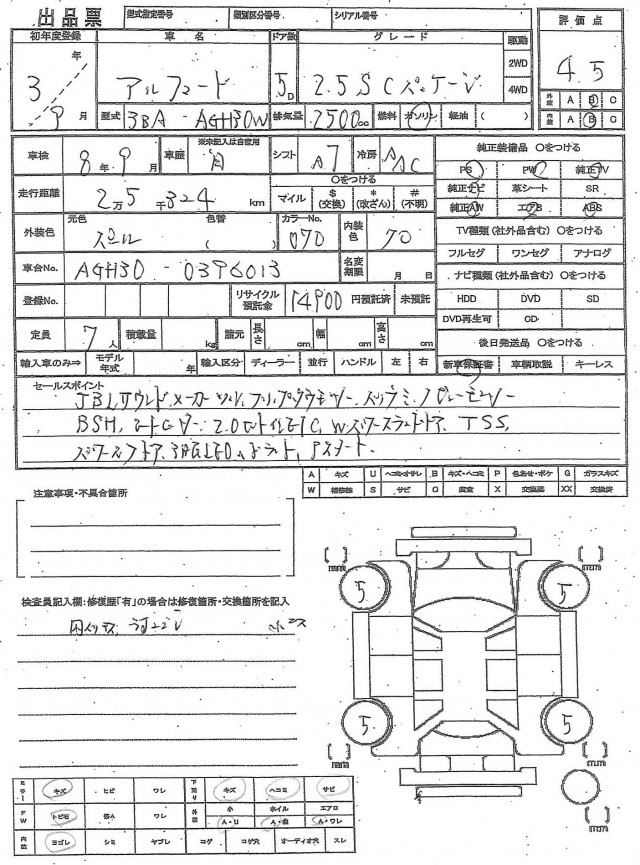 出品票 型式指定番号 類別区分番号 シリアル番号
評価点
4.5
外装 A B C
内装 A B C
初年度登録 車名 ドア数 グレード 駆動
3年9月 アルファード 5D 2.5S Cパッケージ 2WD 4WD
型式 3BA-AGH30W 排気量 2500cc 燃料 ガソリン 軽油 ( )
車検 8年9月 車歴 ※未記入は自家用 自 シフト A7 冷房 AAC
純正装備品 ○をつける
PS PW 純正TV
純正ナビ 革シート SR
純正AW エアB ABS
走行距離 2万5千324km
○をつける
マイル $(交換) *(改ざん) #(不明)
外装色 元色 色替 ( ) カラーNo. 070 内装色 70
TV種類(社外品含む)○をつける
フルセグ ワンセグ アナログ
車台No. AGH30-0396013 名変期限 月 日
ナビ種類(社外品含む)○をつける
HDD DVD SD
DVD再生可 CD
登録No. リサイクル預託金 14900 円預託済 未預託
定員 7人 積載量 kg 諸元 長さ cm 幅 cm 高さ cm
後日発送品 ○をつける
新車保証書 車輌取説 キーレス
輸入車のみ⇒ モデル年式 年 輸入区分 ディーラー 並行 ハンドル 左 右
セールスポイント
JBLサウンド メーカー フリップダウンモニター
BSM 2.0 ETC Wパワースライドドア TSS
3眼LED スマート
A キズ U ヘコミ・オサレ B キズ・ヘコミ P 色あせ・ボケ G ガラスキズ
W 補修跡 S サビ C 腐食 X 交換要 XX 交換済
注意事項・不具合箇所
検査員記入欄:修復歴「有」の場合は修復箇所・交換箇所を記入
[ ]mm [ ]mm
5 5
5 5
[ ]mm [ ]mm
ミラー キズ ヒビ ワレ 下廻り キズ ヘコミ サビ
FW トビ石 ワレ 外装 小 A・U ホイル エアロ A・ワレ
内装 ヨゴレ シミ ヤブレ コゲ コゲ穴 オーディオ穴 スレ